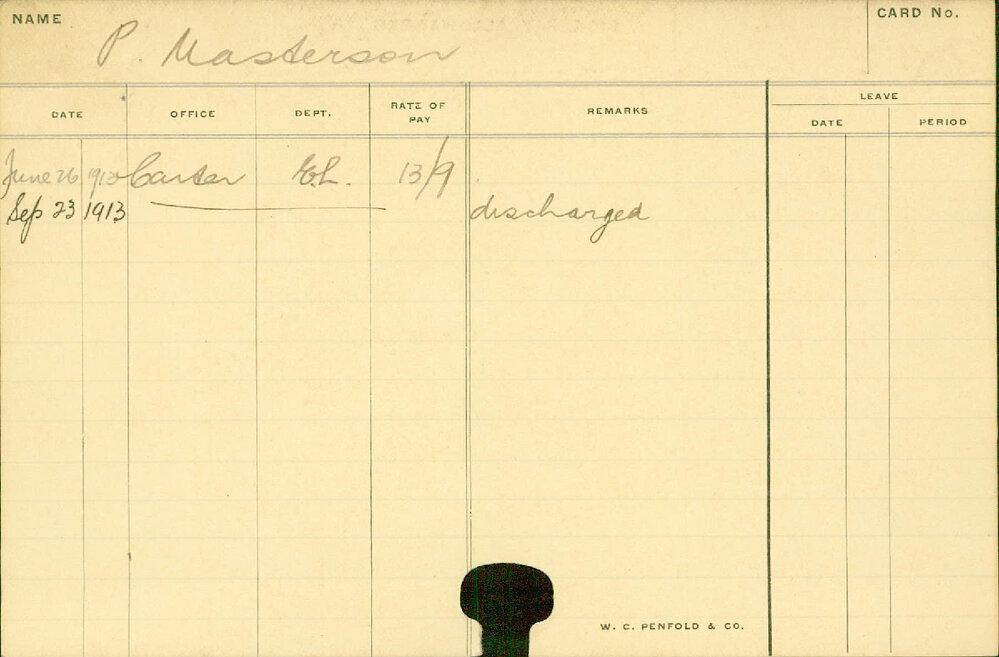 NAME
P. Masterson
CARD No.
DATE
OFFICE
DEPT.
RATE OF PAY
REMARKS
LEAVE
DATE
PERIOD
June 26 Carter E.L. 13/9
Sep 23 1913 discharged
W. C. PENFOLD & CO.